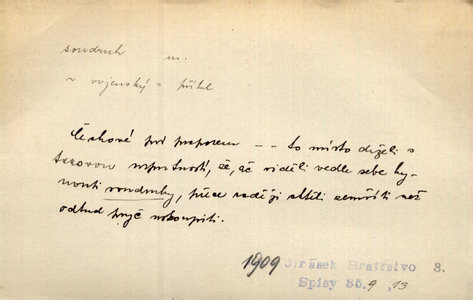 soudruh m.
~ vojenský = přítel
Čechové pod praporem -- to místo drželi s
takovou urputností, že, ač viděli vedle sebe hy-
nouti soudruhy, přece raději chtěli zemříti než
odtud pryč ustoupiti.
1909 Jirásek Bratrstvo 3.
Spisy 35.9 13